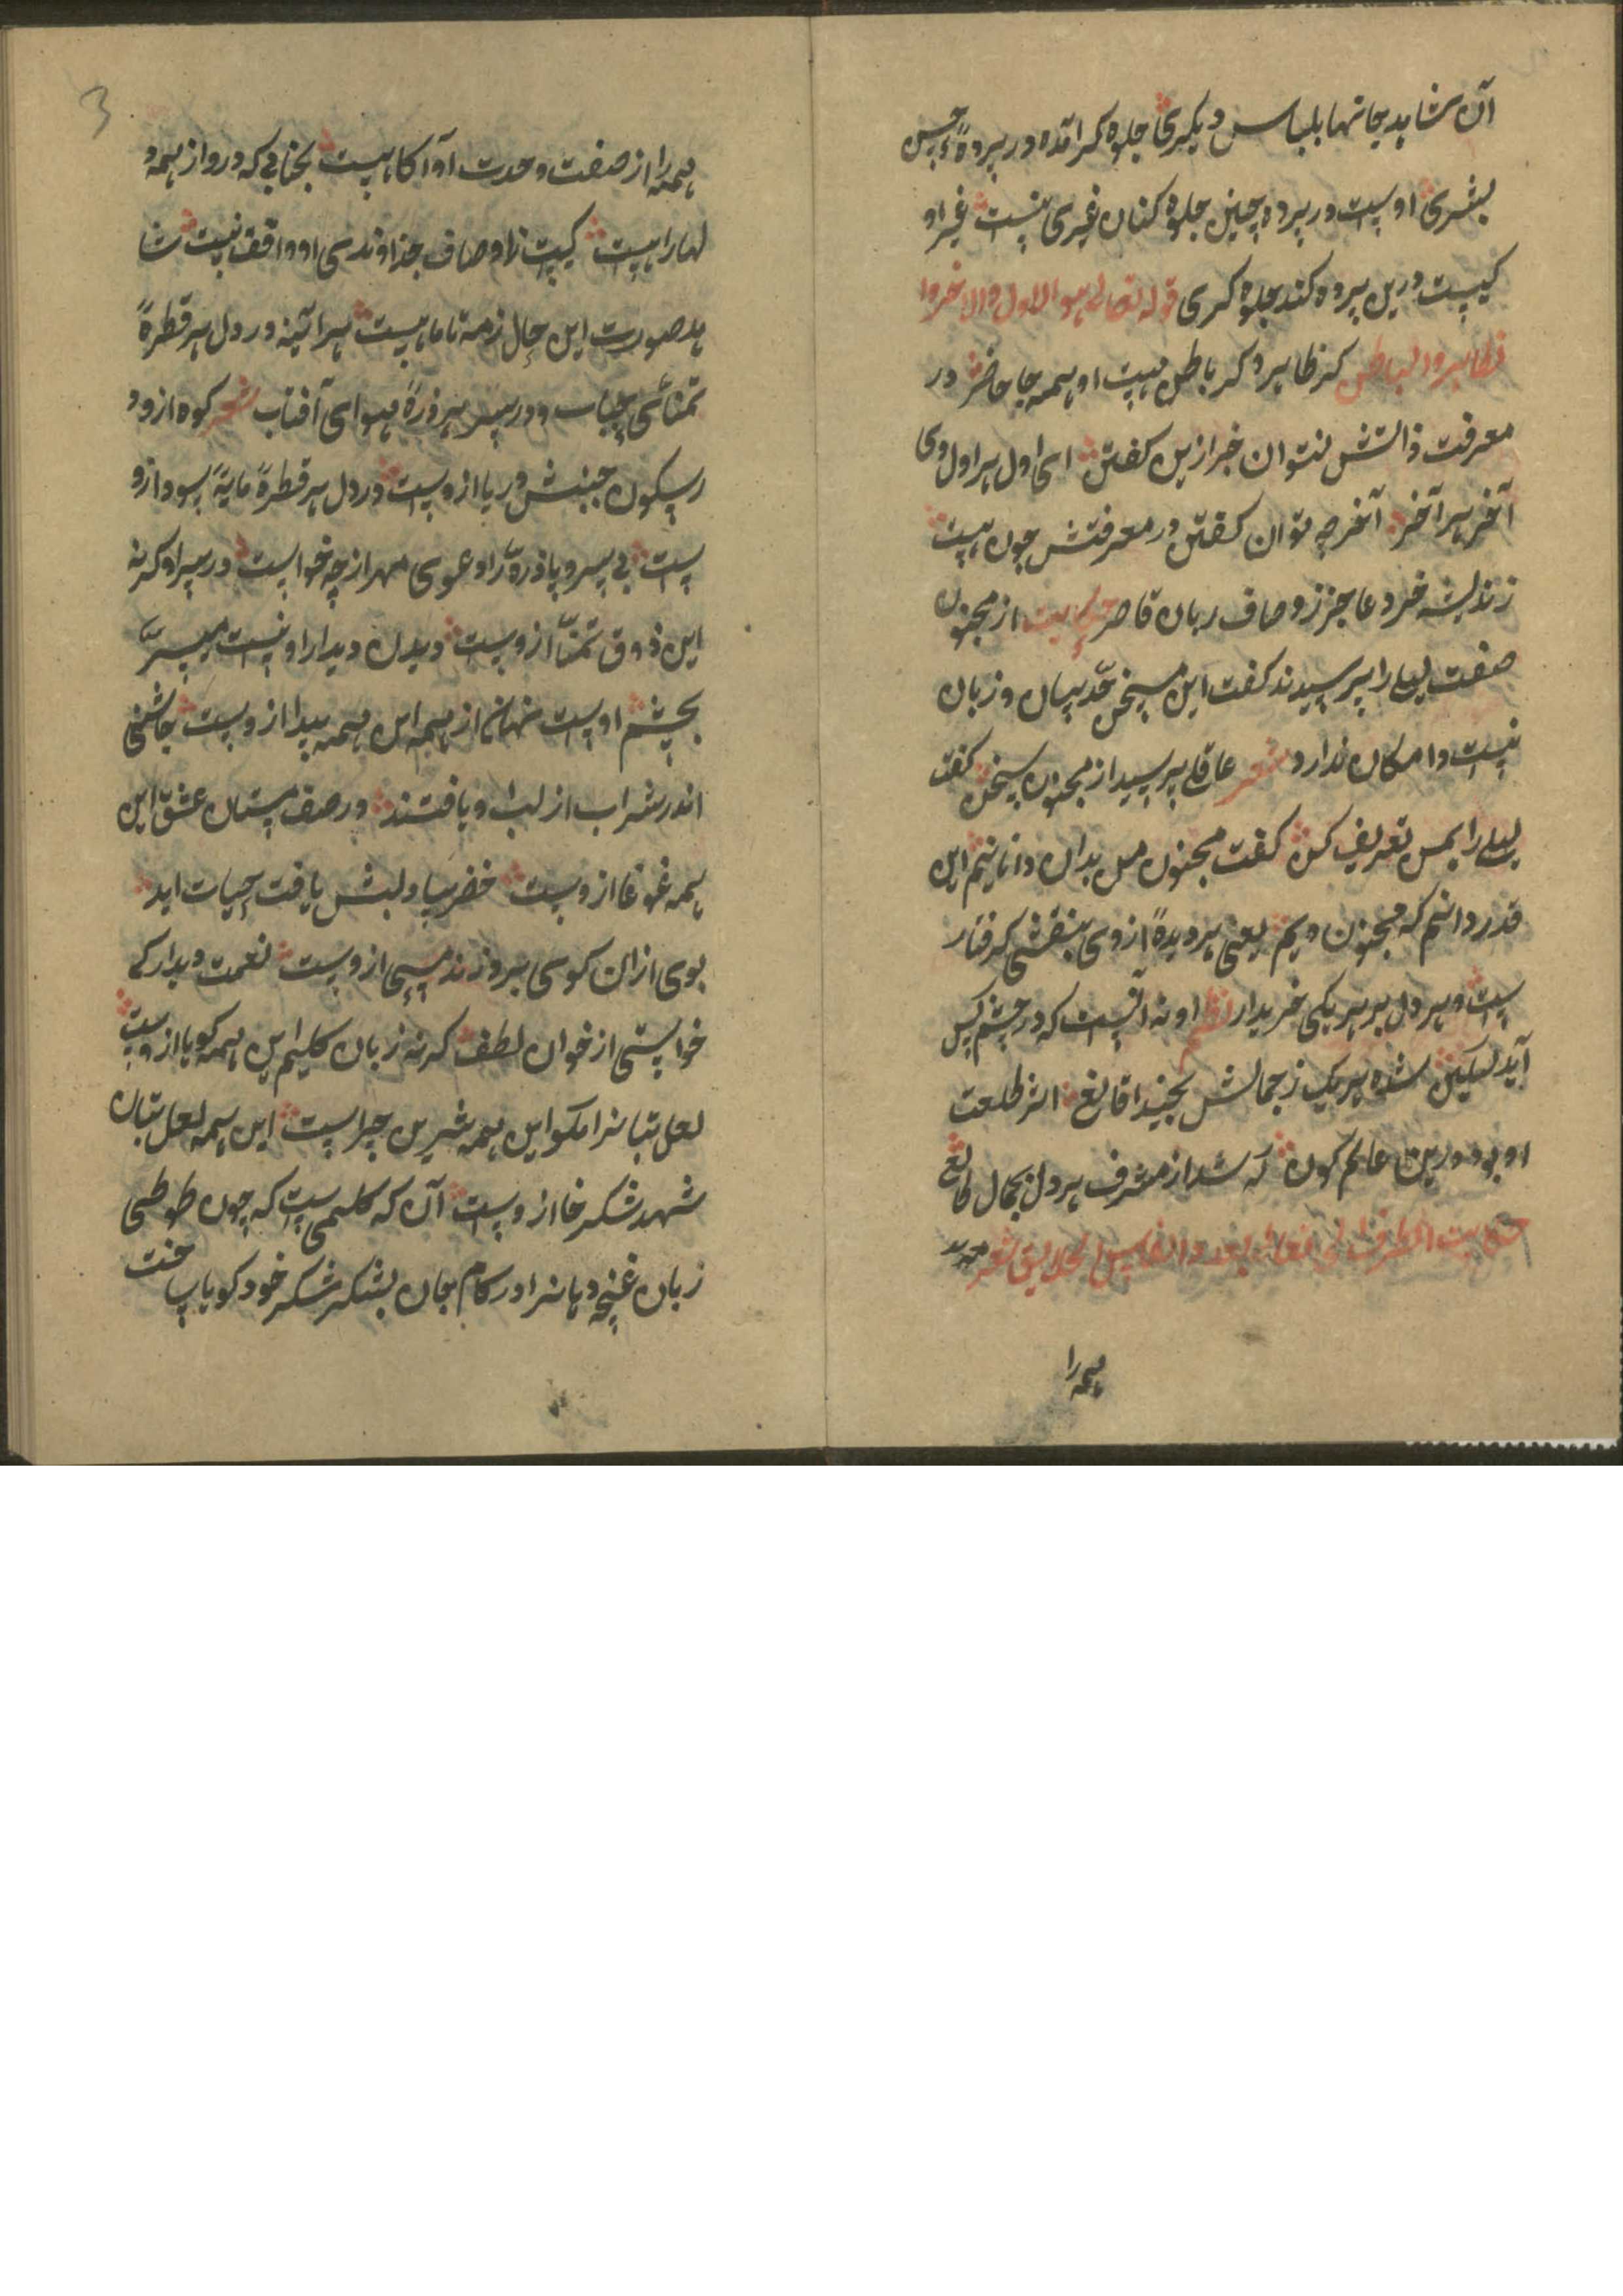 آن شاهد جانها بلباس دیگری جلوه کر آمده در پرده حسن
بشری اوست در پرده چنین جلوه کنان غیری نیست غیر او
کیست درین پرده کند جلوه کری قوله تعالی هو الاول والاخر وا
لظاهر والباطن کر ظاهر و کر باطن هست او همه جا حاضر در
معرفت ذاتش نتوان خبر ازین کفتن ای اول هر اول وی
آخر هر آخر آخر چه توان کفتن در معرفتش چون هست
زندیشه خرد عاجز ز وصاف زبان قاصر حکایت از مجنون
صفت لیلی را پرسیدند کفت این سخن حد بیان و زبان
نیست و امکان ندارد شعر عاقلی پرسید از مجنون سخن کفت
لیلی را بمن تعریف کن کفت مجنون من بدان دانا نیم این
قدر دانم که مجنون ویم یعنی هر دیده از وی بنقشی کرفتار
ست و هر دل بر هر یکی خریدار نظم او نه آنست که در چشم کس
آید لیکن شده هر یک ز جمالش بخیالی قانع اثر طلعت
او بود درین عالم کون که شد از مشرف هر دل بجمال طالع
همه را
همه را از صفت وحدت او آکاهیست بجنابی که درو از همه و
لها راهیست کیست کز اوصاف خداوندی او واقف نیست شا
هد صورت این حال ز مه تا ماهیست هر آئینه در دل هر قطره
تمنائی چیاب و در سر هر ذره هوای آفتاب شعر کوه ازو د
ر سکون جنبش دریا ازوست در دل هر قطره مایه سودا ازو
ست بی سر و پا ذره را دعوی مهر از چه خواست در سر او کرنه
این ذوق تمنا ازوست دیدن دیدار او نیست میسر
بچشم اوست نهان از همه این همه پیدا ازوست چاشنی
اندر شراب از لب او یافتند در صف مستان عشق این
همه غوغا ازوست خضر بیاد لبش یافت حیات ابد
بوی ازان کوی برو زنده مسیحی ازوست نعمت دیدار کی
خواستی از خوان لطف کرنه زبان کلیم این همه کویا ازوست
لعل بتانرا مکو این همه شیرین چراست این همه لعل بتان
شهد شکر خا ازوست آن که کلیمی ست که چون طوطی
زبان غنچه دهانرا در کام جان بشکر شکر خود کویا ساخت
3